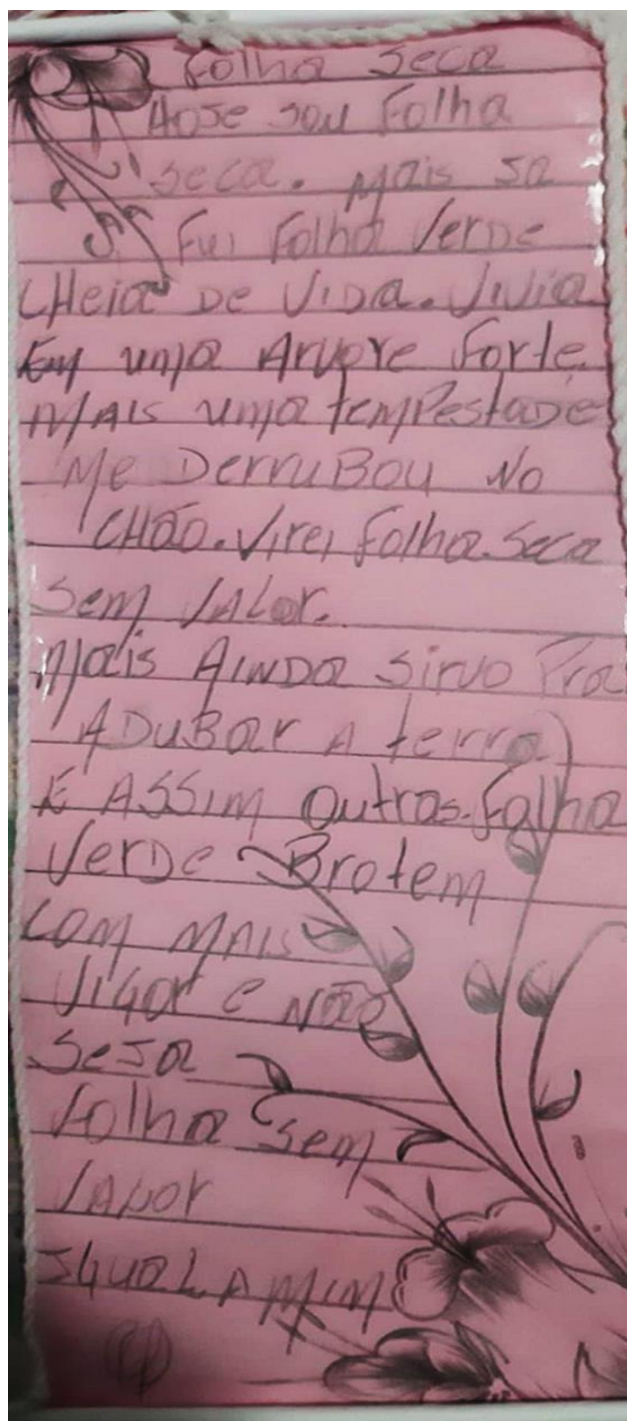 Folha Seca
Hose sou Folha
seca. Mais sa
Fui Folha Verde
CHeia De ViDa. Vivia
Em uma Arvore Forte.
MAis uma temPestaDe
Me DerruBou No
CHão. Virei Folha. Seca
Sem VALor.
Mais AinDa Sirvo Pra
ADuBar A terra
E ASSim Outras. Folha
VerDe Brotem
Com MAis
ViGor e Não
SeJa
Folha Sem
VALor
IGuaL A Mim